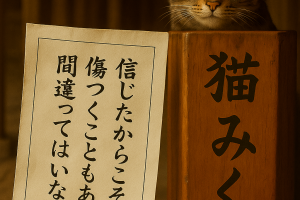 信じたからこそ
傷つくこともあ
間違ってはいな
猫みく